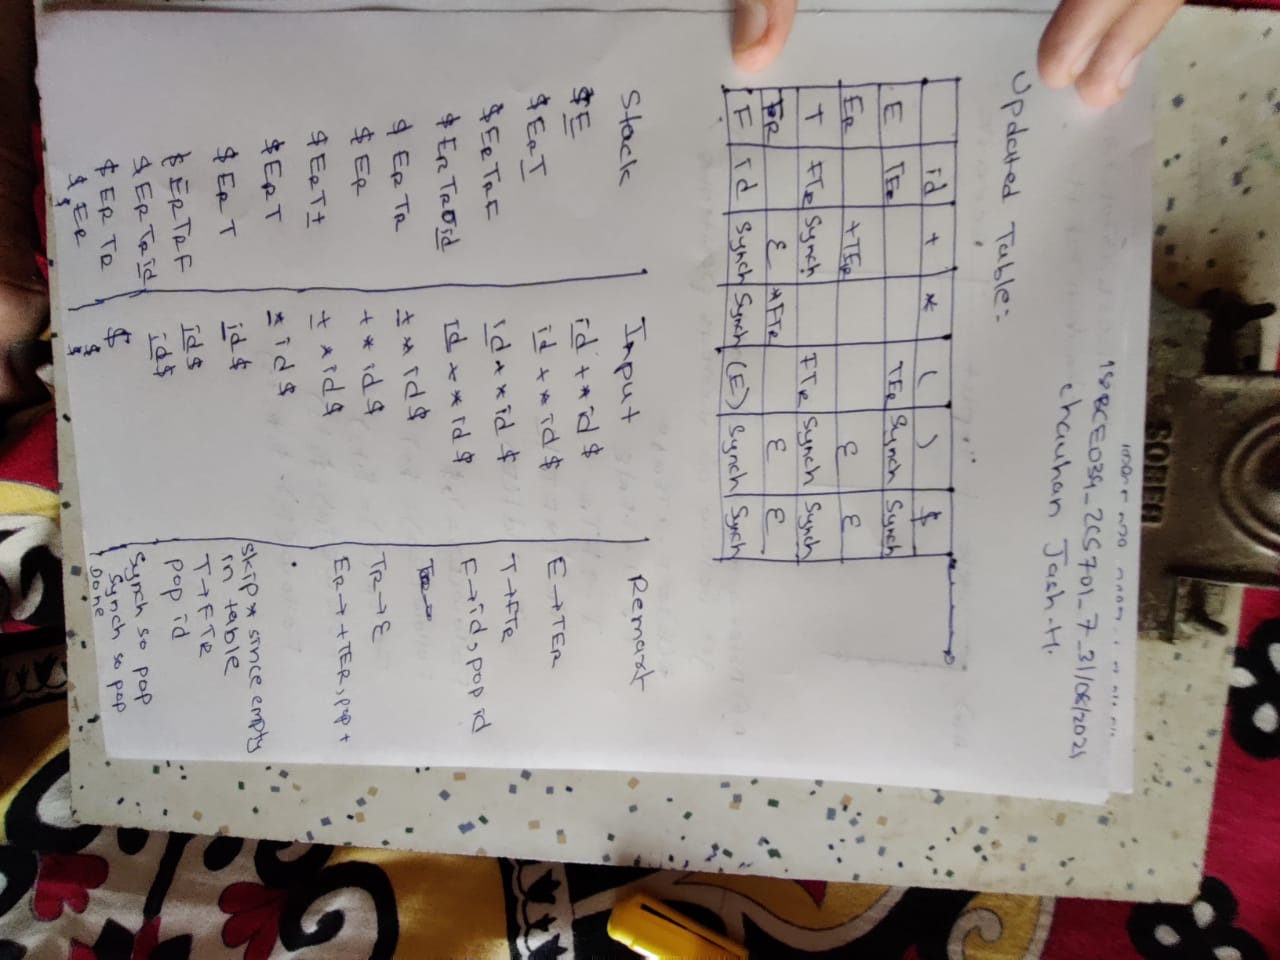 SOBEA
18BCE034_2CS701_7_31/08/2021
Chauhan Jash.H.
Updated Table:
id + * ( ) $
E TER TER Synch Synch
ER +TER ε ε
T FTR Synch FTR Synch Synch
TR ε *FTR ε ε
F id Synch Synch (E) Synch Synch
Stack Input Remark
$E id +*id$
$ERT id +*id$ E→TER
$ERTRF id+*id$ T→FTR
$ERTRid id+*id$ F→id, pop id
$ERTR +*id$
$ER +*id$ TR→ε
$ERT+ +*id$ ER→+TER, pop +
$ERT *id$
$ERT id$ skip * since empty in table
$ERTRF id$ T→FTR
$ERTRid id$ pop id
$ERTR $ Synch so pop
$ER $ Synch so pop
$ $ Done